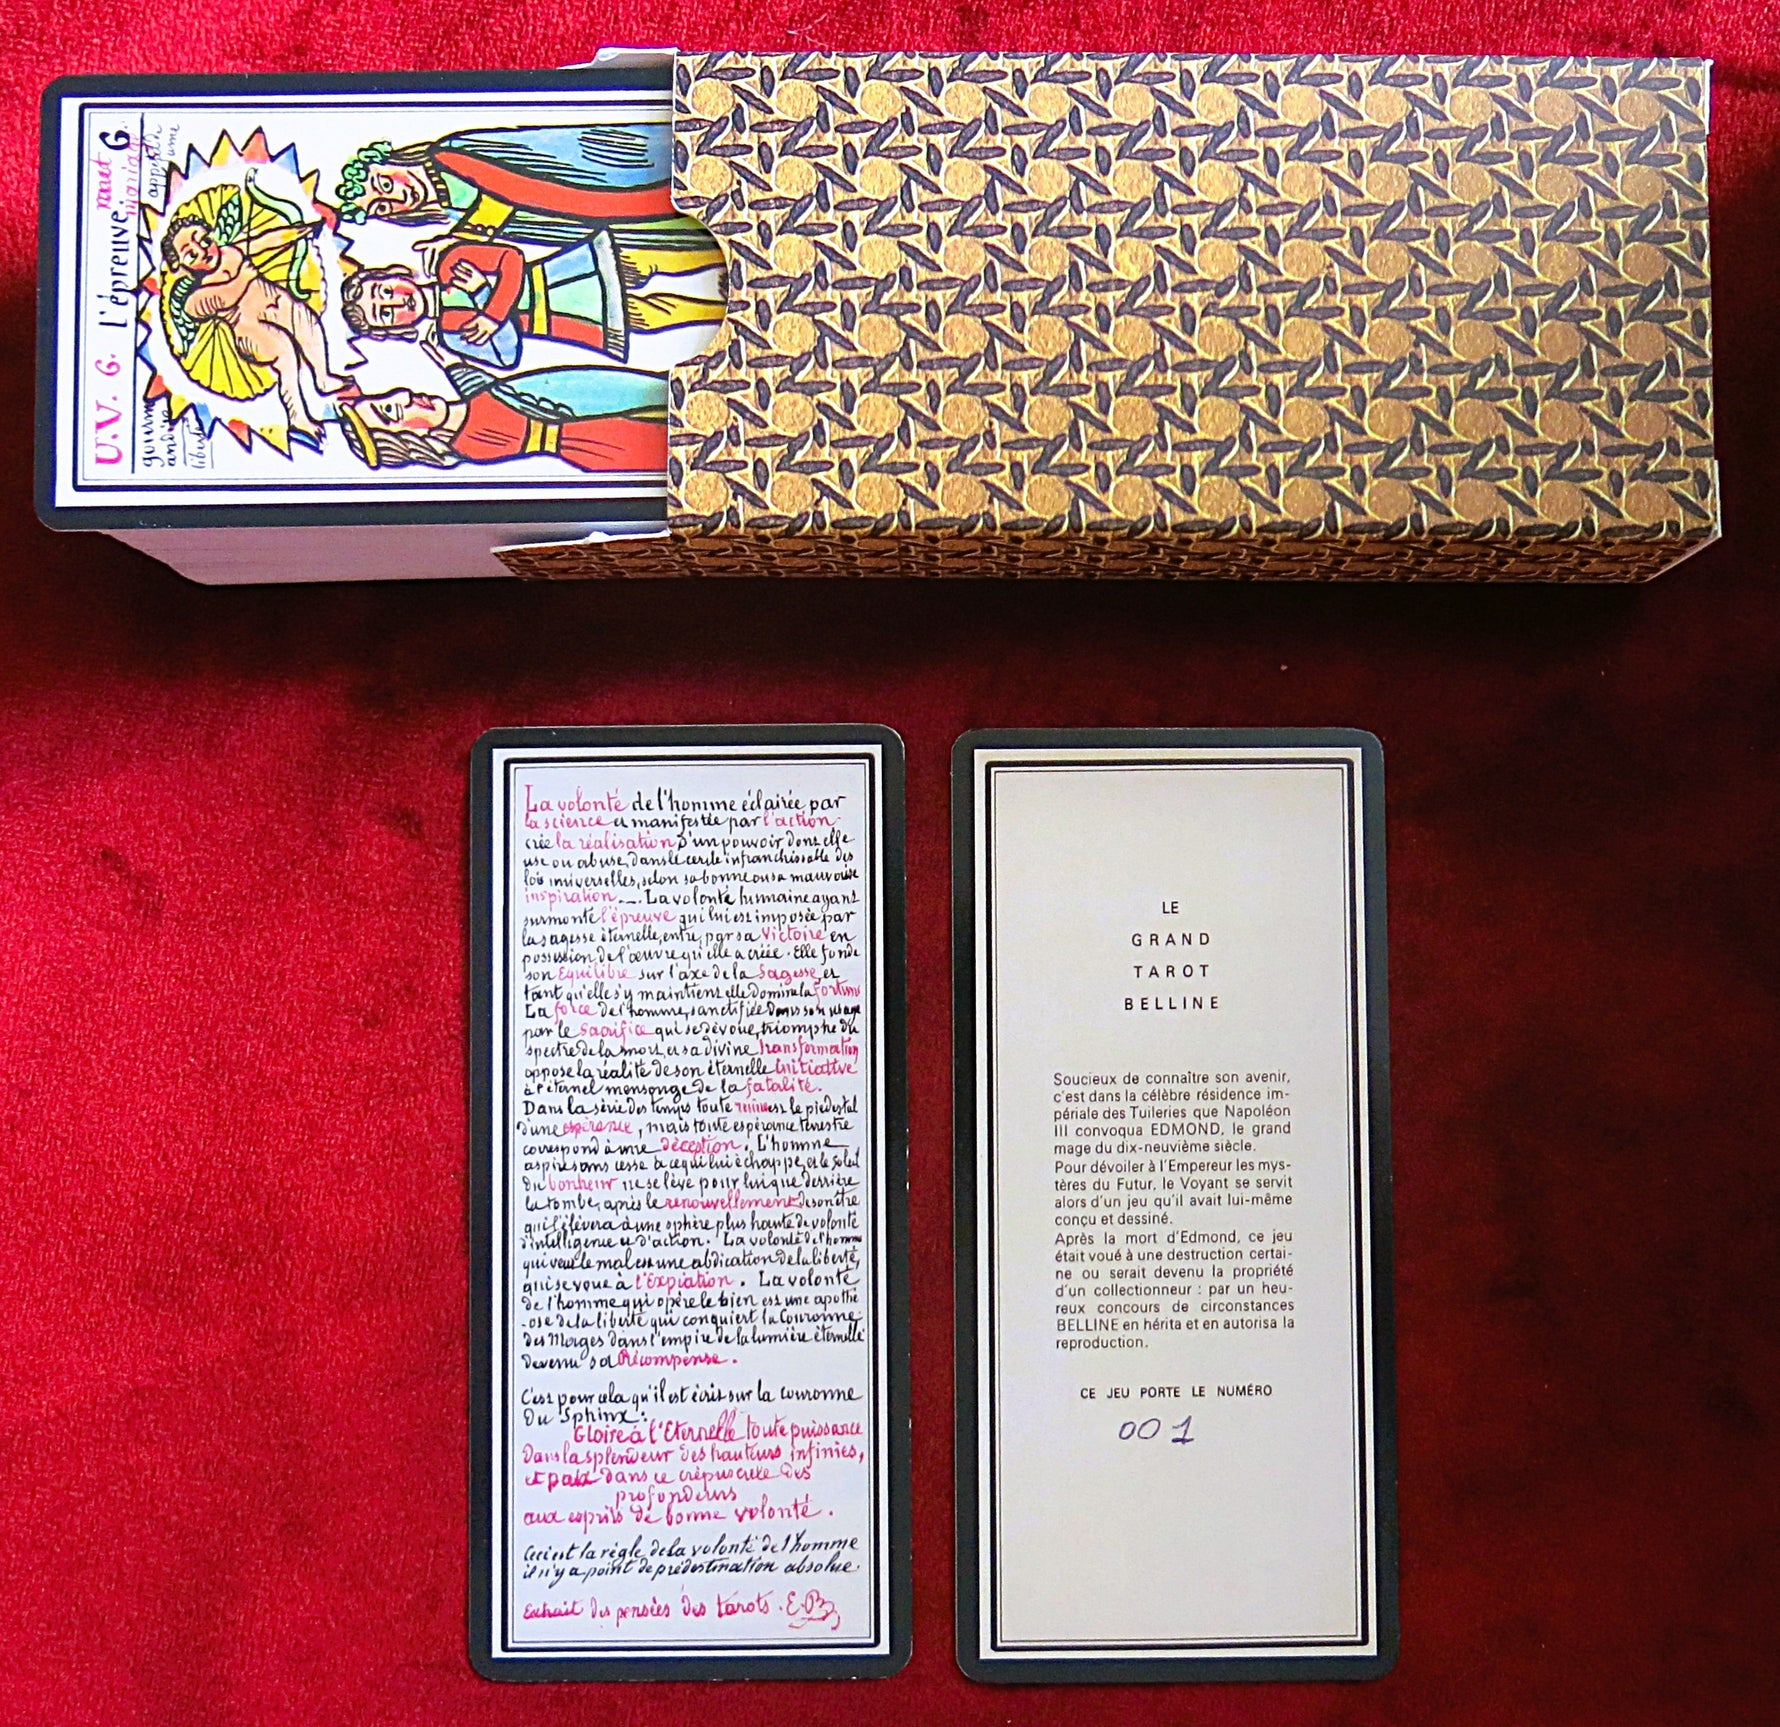 U.V. 6. L'épreuve. 6.
liberté
La volonté de l'homme éclairée par
la science et manifestée par l'action
crée la réalisation d'un pouvoir dont elle
use ou abuse, dans le cercle infranchissable des
lois universelles, selon sa bonne ou sa mauvaise
inspiration. _ . La volonté humaine ayant
surmonté l'épreuve qui lui est imposée par
la sagesse éternelle, entre, par sa Victoire en
possession de l'œuvre qu'elle a créée. Elle fonde
son Equilibre sur l'axe de la Sagesse, et
tant qu'elle s'y maintient elle domine la fortune
La force de l'homme, sanctifiée dans son usage
par le Sacrifice qui se dévoue, triomphe du
spectre de la mort, et sa divine transformation
oppose la réalité de son éternelle Initiative
à l'éternel mensonge de la fatalité.
Dans la série des temps toute ruine est le piédestal
d'une espérance, mais toute espérance terrestre
correspond à une déception. L'homme
aspire sans cesse à ce qui lui échappe, et le Soleil
du bonheur ne se lève pour lui que derrière
la tombe, après le renouvellement de son être
qui l'élèvera à une sphère plus haute de volonté
d'intelligence et d'action. La volonté de l'homme
qui veut le mal est une abdication de la liberté,
qui se voue à l'Expiation. La volonté
de l'homme qui opère le bien est une apothé
-ose de la liberté qui conquiert la Couronne
des Mages dans l'empire de la lumière éternelle
devenu sa Récompense.
C'est pour cela qu'il est écrit sur la couronne
du Sphinx:
Gloire à l'Eternelle toute puissance
Dans la splendeur des hauteurs infinies,
et paix dans le crépuscule des
profondeurs
aux esprits de bonne volonté.
Ceci est la règle de la volonté de l'homme
il n'y a point de prédestination absolue.
Extrait des pensées des tarots.
LE
GRAND
TAROT
BELLINE
Soucieux de connaître son avenir,
c'est dans la célèbre résidence im-
périale des Tuileries que Napoléon
III convoqua EDMOND, le grand
mage du dix-neuvième siècle.
Pour dévoiler à l'Empereur les mys-
tères du Futur, le Voyant se servit
alors d'un jeu qu'il avait lui-même
conçu et dessiné.
Après la mort d'Edmond, ce jeu
était voué à une destruction certai-
ne ou serait devenu la propriété
d'un collectionneur : par un heu-
reux concours de circonstances
BELLINE en hérita et en autorisa la
reproduction.
CE JEU PORTE LE NUMÉRO
001